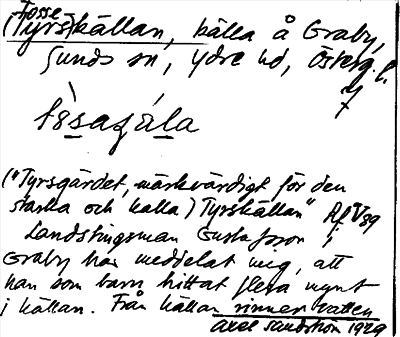 Fosse-
(Tyrs)källan, källa å Graby,
Sunds sn, Ydre hd, Österg. l.
("Tyrsgärdet, märkvärdigt för den
starka och kalla) Tyrskällan" Rf V 89
Landstingsman Gustafsson i
Graby har meddelat mig, att
han som barn hittat flera mynt
i källan. Från källan rinner vatten
Axel Sandström 1929